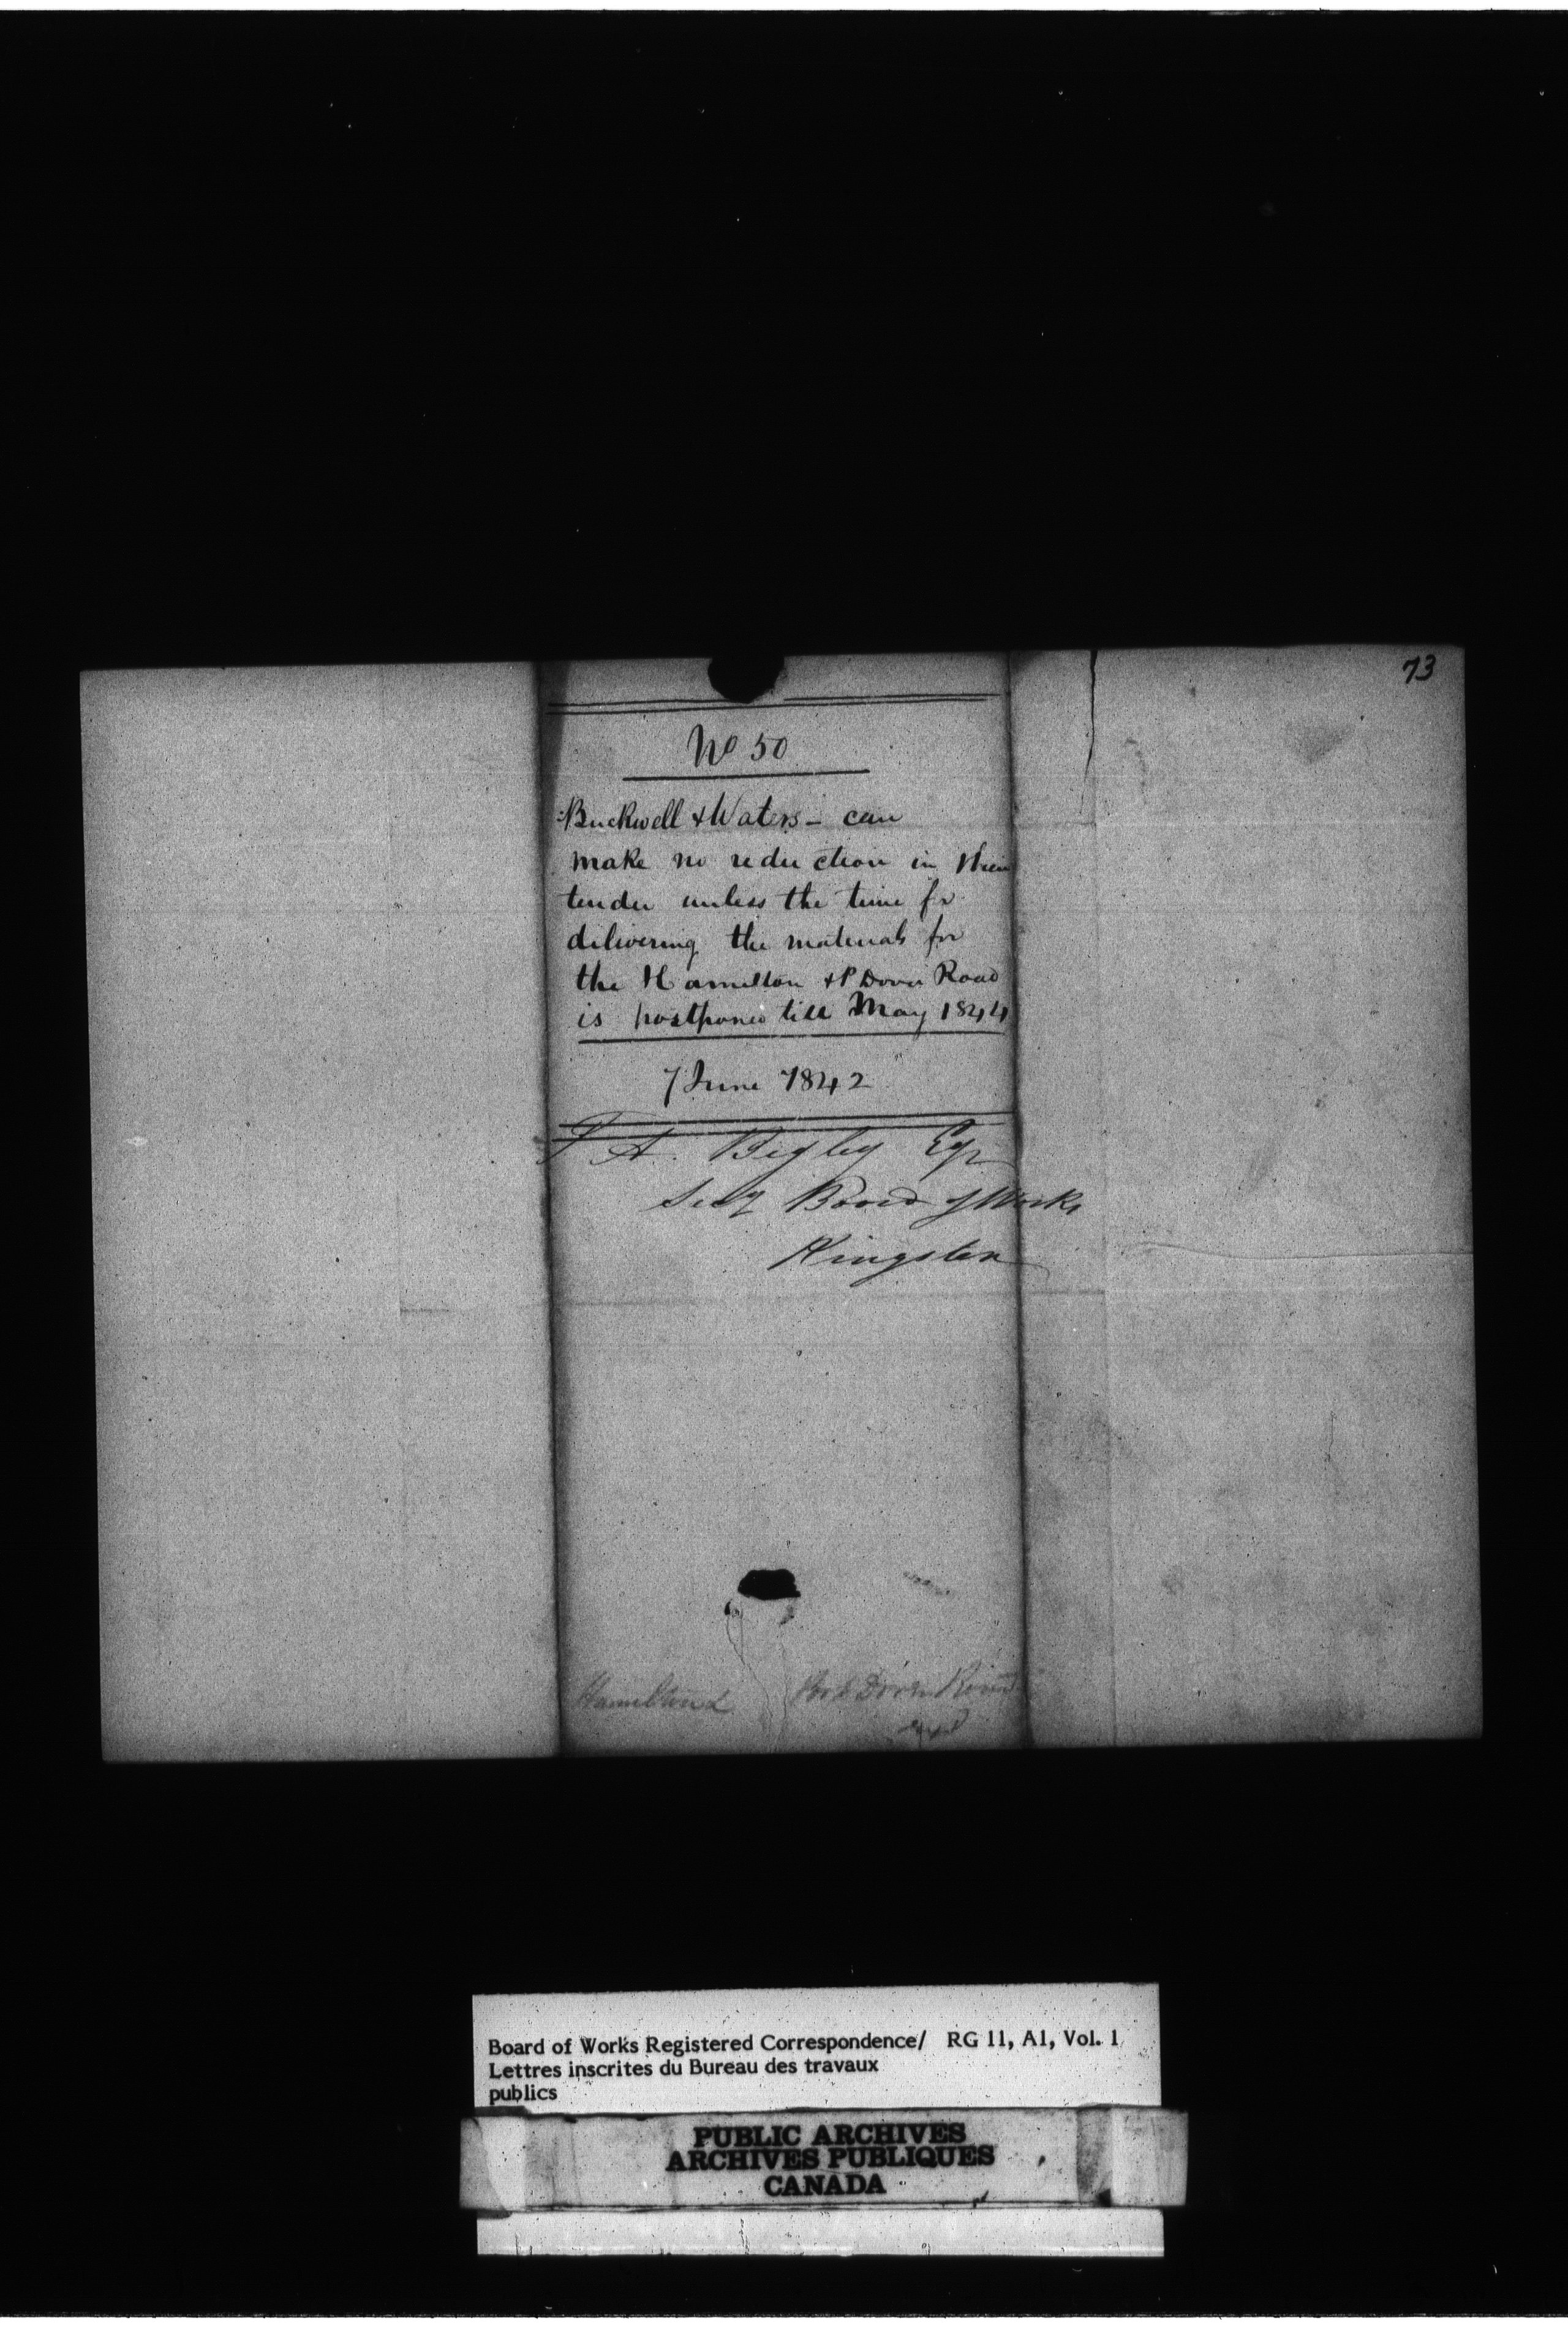 73
No 50
Buckwell & Waters - can
make no reduction in their
tender unless the time for
delivering the materials for
the Hamilton & P Dover Road
is postponed till May 1844
7 June 1842
T A. Begley Esqr
Secy Board of Works
Kingston
Hamilton & Port Dover Road
Board of Works Registered Correspondence/ RG 11, A1, Vol. 1
Lettres inscrites du Bureau des travaux
publics
PUBLIC ARCHIVES
ARCHIVES PUBLIQUES
CANADA